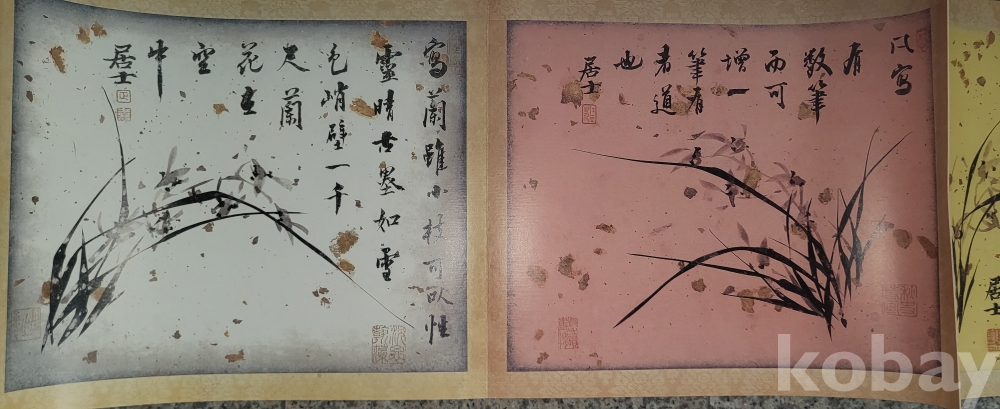 居士
寫
有
數筆
而可
增一
筆有
者道
也
居士
寫蘭雖小技可以性
靈晴古墨如雲
色峭壁一千
尺蘭
花在
空
中
居士
kobay